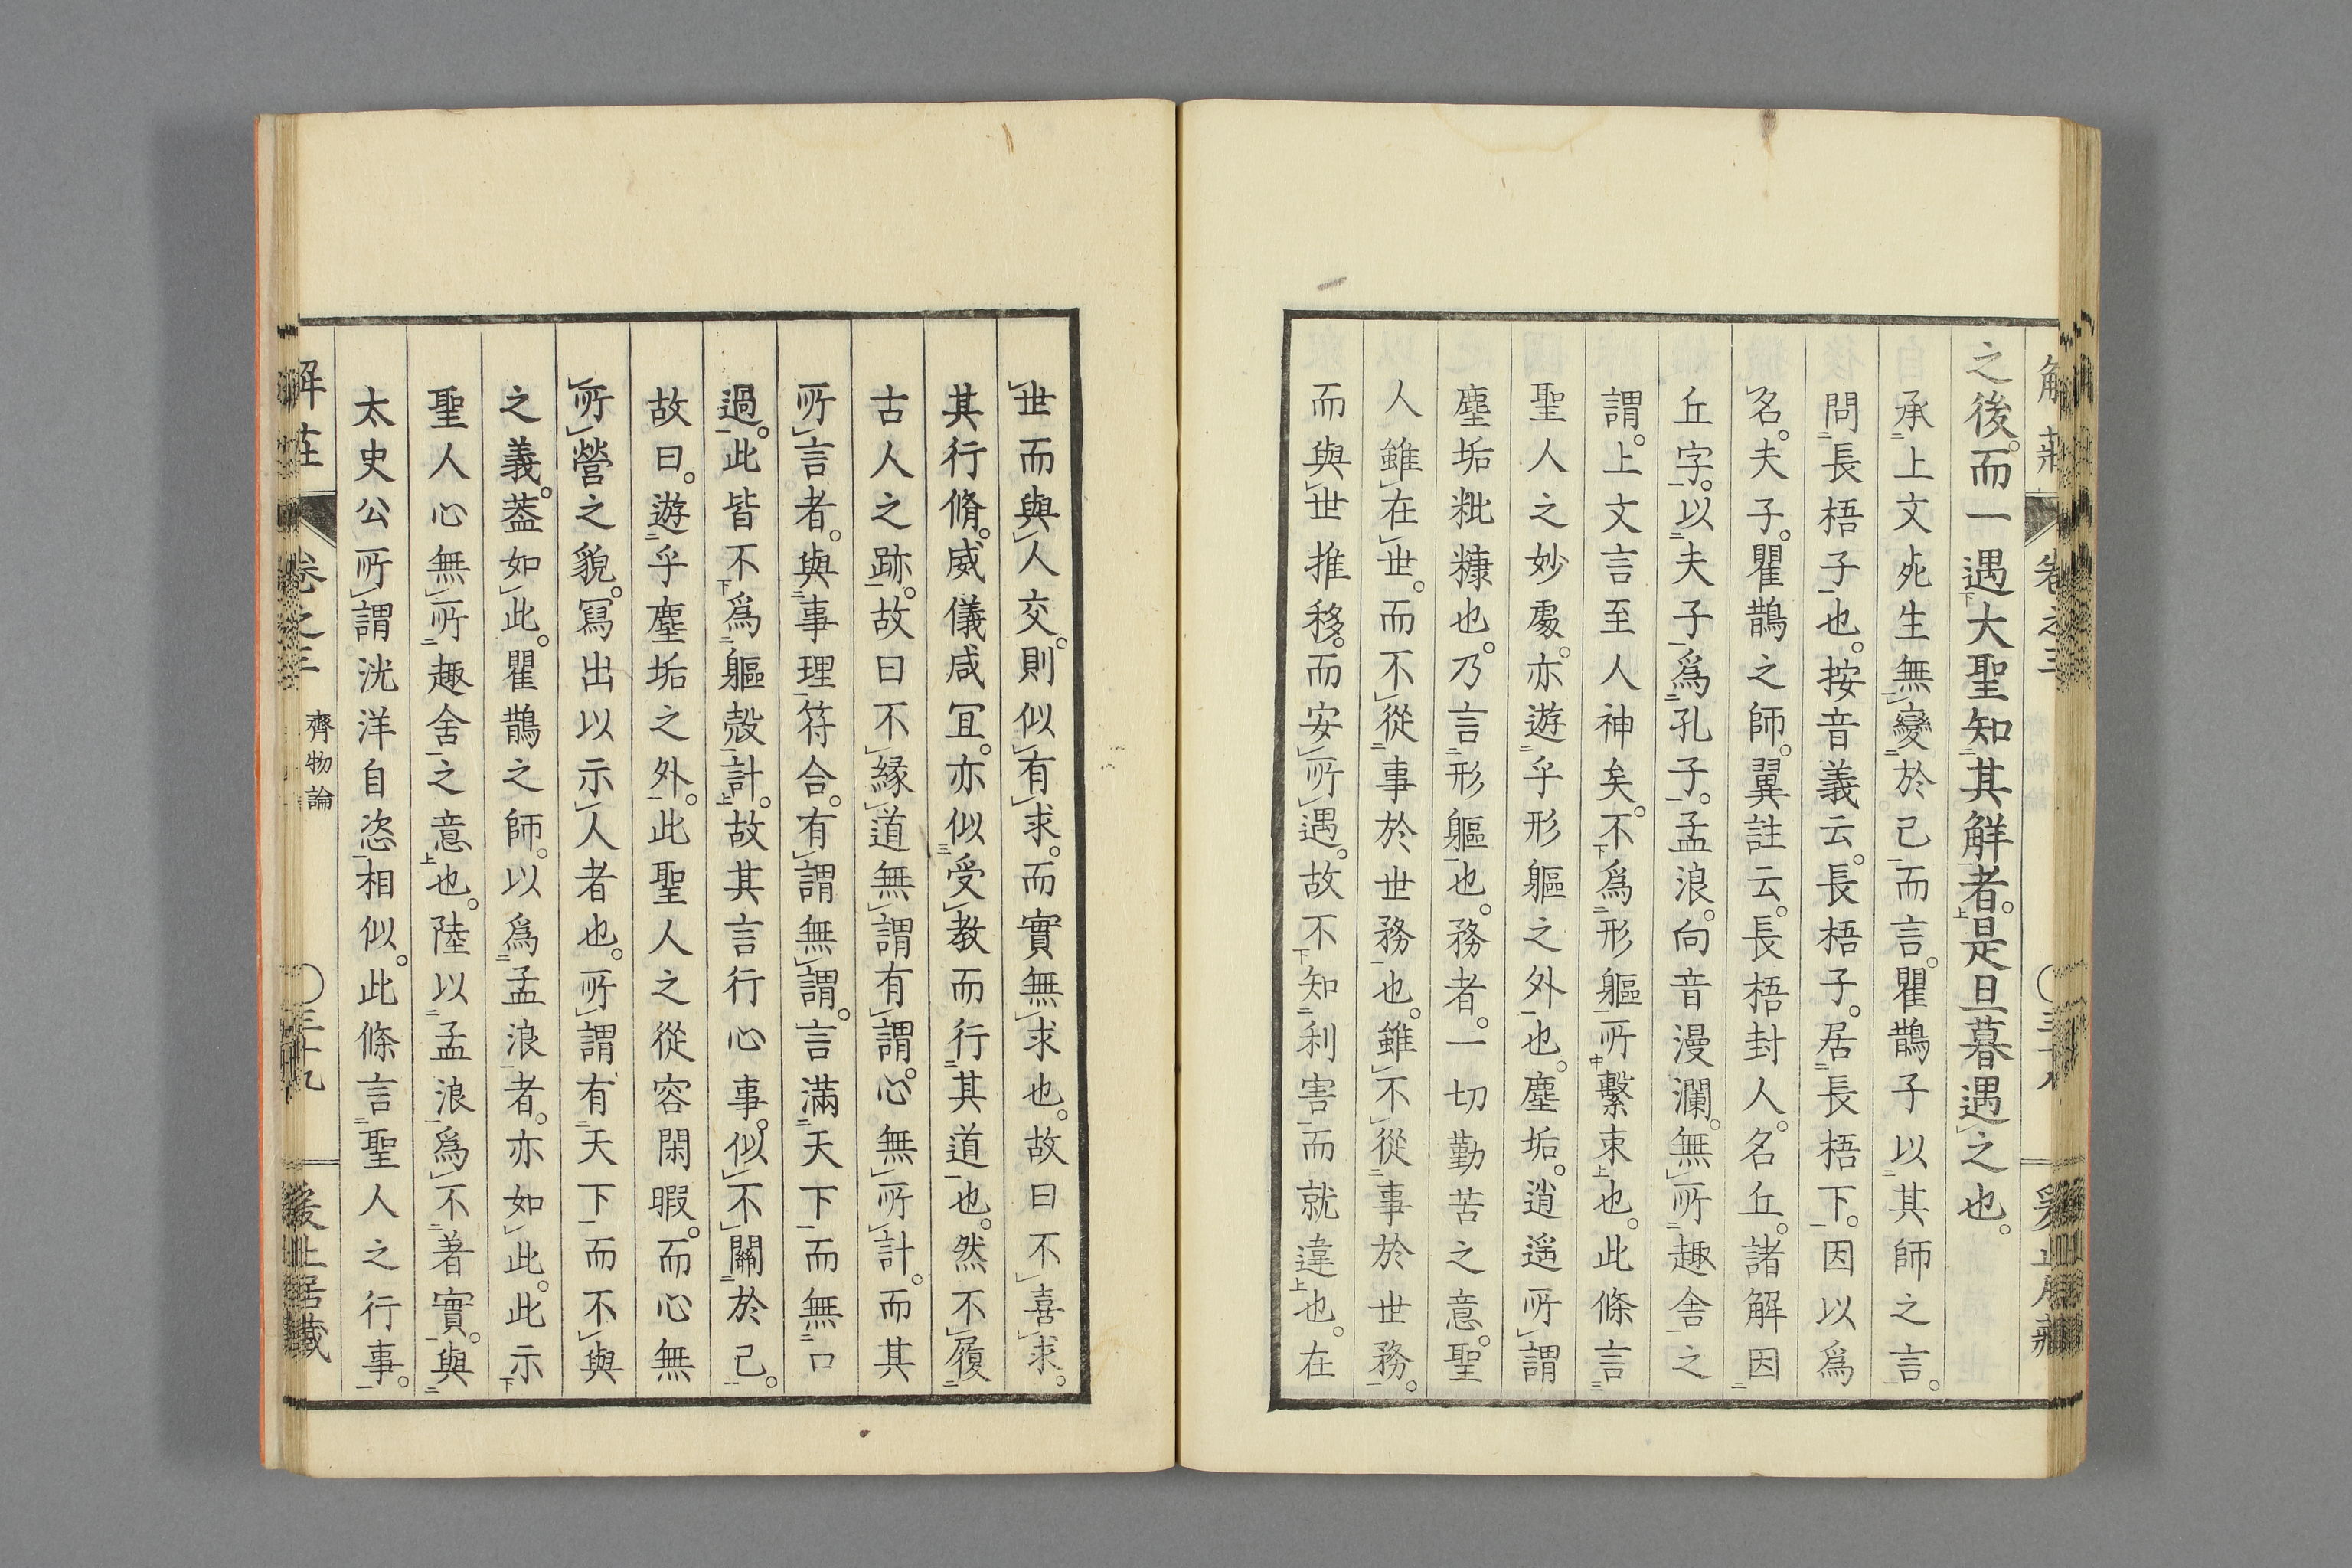 之後。而一遇大聖知其解者。是旦暮遇之也。
承上文死生無變於己而言。瞿鵲子以其師之言。
問長梧子也。按音義云。長梧子。居長梧下。因以爲
名。夫子。瞿鵲之師。翼註云。長梧封人。名丘。諸解因
丘字。以夫子爲孔子。孟浪。向音漫瀾。無所趣舍之
謂。上文言至人神矣。不爲形軀所繫束也。此條言
聖人之妙處。亦遊乎形軀之外也。塵垢。逍遥所謂
塵垢粃糠也。乃言形軀也。務者。一切勤苦之意。聖
人雖在世。而不從事於世務也。雖不從事於世務。
而與世推移。而安所遇。故不知利害而就違也。在
世而與人交。則似有求。而實無求也。故曰不喜求。
其行脩。威儀咸冝。亦似受教而行其道也。然不履
古人之跡。故曰不縁道無謂有謂。心無所計。而其
所言者。與事理符合。有謂無謂。言滿天下而無口
過。此皆不爲軀殻計。故其言行心事。似不關於己。
故曰。遊乎塵垢之外。此聖人之從容閑暇。而心無
所營之貌。冩出以示人者也。所謂有天下而不與
之義。葢如此。瞿鵲之師。以爲孟浪者。亦如此。此示
聖人心無所趣舍之意也。陸以孟浪爲不著實。與
太史公所謂洸洋自恣相似。此條言聖人之行事。
解莊 卷之三 齊物論 ○三十九